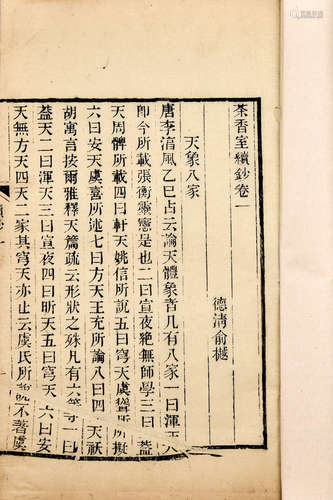 茶香室續鈔卷一
德淸俞樾
天象八家
唐李淳風乙巳占云論天體象者凡有八家一曰渾天
卽今所載張衡靈憲是也二曰宣夜絶無師學三曰蓋
天周髀所載四曰軒天姚信所說五曰穹天虞聳所擬
六曰安天虞喜所述七曰方天王充所論八曰四天祅
胡寓言按爾雅釋天篇疏云形狀之殊凡有六等一曰
蓋天二曰渾天三曰宣夜四曰昕天五曰穹天六曰安
天無方天四天二家其穹天亦止云虞氏所說不著虞